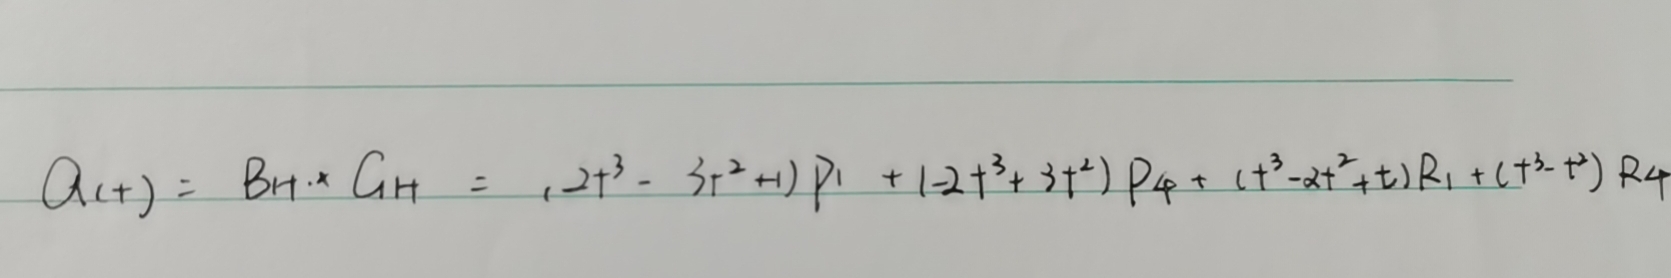 Q(t) = BH.* GH = (2t³ - 3t² +1) P1 + (-2t³ + 3t²) P4 + (t³-2t²+t) R1 + (t³- t²) R4